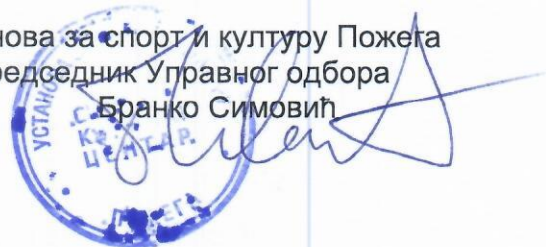 нова за спорт и културу Пожега
редседник Управног одбора
Бранко Симовић
УСТАНОВА
ЦЕНТАР